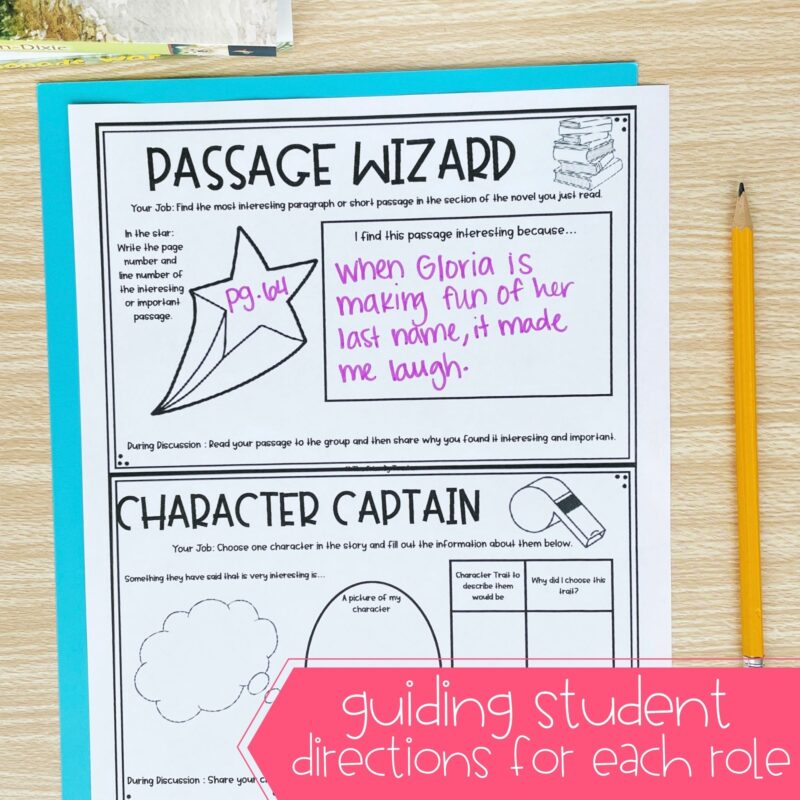 n-Dixie
PASSAGE WIZARD
Your Job: Find the most interesting paragraph or short passage in the section of the novel you just read.
In the star:
Write the page
number and
line number of
the interesting
or important
passage.
pg. 64
I find this passage interesting because...
When Gloria is
making fun of her
last name, it made
me laugh.
During Discussion : Read your passage to the group and then share why you found it interesting and important.
CHARACTER CAPTAIN
Your Job: Choose one character in the story and fill out the information about them below.
Something they have said that is very interesting is...
A picture of my
character
Character Trait to
describe them
would be
Why did I choose this
trait?
During Discussion : Share your
guiding student
directions for each role